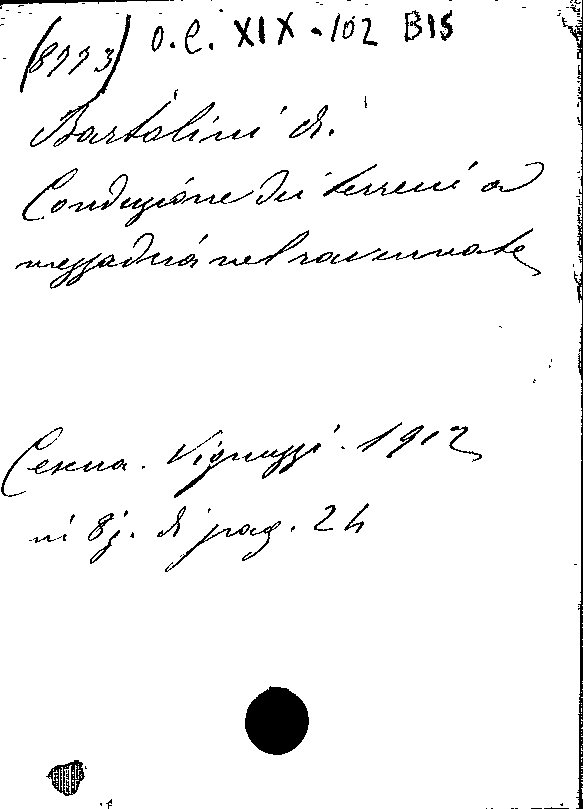 (8993) O.C. XIX-102 BIS
Bartolini d.
Conduzione dei terreni a
mezzadria nel ravennate
Cesena. Vignuzzi. 1912
in 8°. di pag. 24